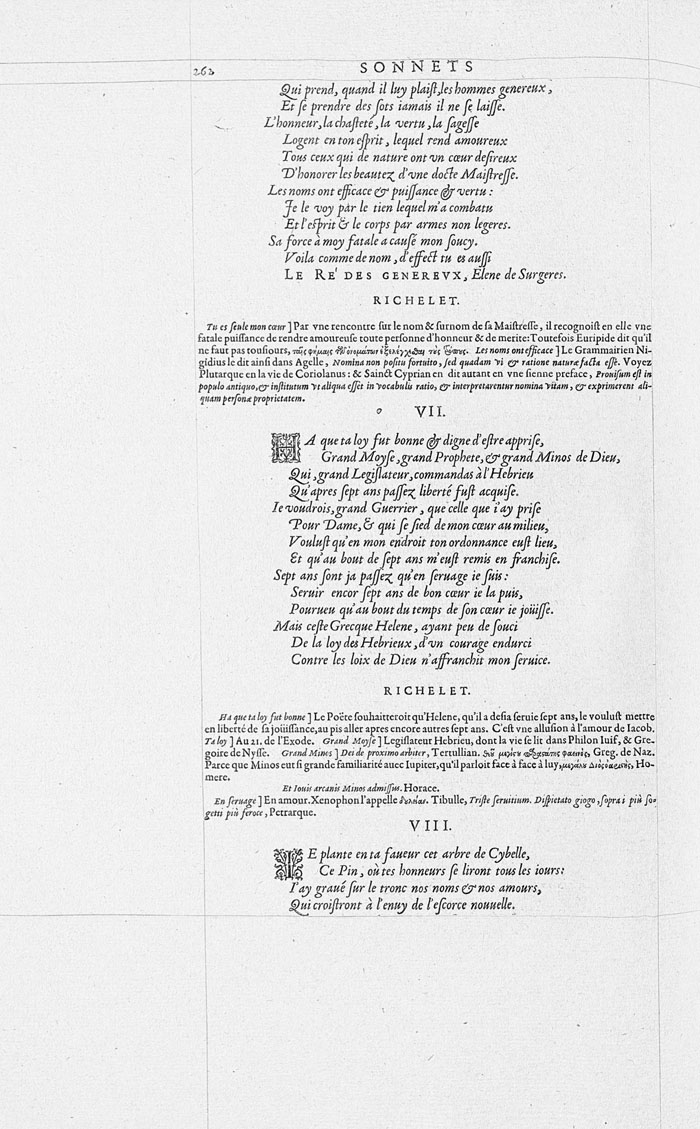 262
SONNETS
Qui prend, quand il luy plaiſt, les hommes genereux,
Et ſe prendre des ſots iamais il ne ſe laiſſe.
L'honneur, la chaſteté, la vertu, la ſageſſe
Logent en ton eſprit, lequel rend amoureux
Tous ceux qui de nature ont vn cœur deſireux
D'honorer les beautez d'vne docte Maiſtreſſe.
Les noms ont efficace & puiſſance & vertu:
Je le voy par le tien lequel m'a combatu
Et l'eſprit & le corps par armes non legeres.
Sa force à moy fatale a cauſé mon ſoucy.
Voila comme de nom, d'effect tu es auſſi
LE RE' DES GENEREVX, Elene de Surgeres.
RICHELET.
Tu es ſeule mon cœur] Par vne rencontre ſur le nom & ſurnom de ſa Maiſtreſſe, il recognoiſt en elle vne
fatale puiſſance de rendre amoureuſe toute perſonne d'honneur & de merite: Toutefois Euripide dit qu'il
ne faut pas touſiours, Les noms ont efficace] Le Grammairien Ni-
gidius le dit ainſi dans Agelle, Nomina non poſitu fortuito, ſed quadam vi & ratione naturæ facta eſſe. Voyez
Plutarque en la vie de Coriolanus: & Sainct Cyprian en dit autant en vne ſienne preface, Prouiſum eſt in
populo antiquo, & inſtitutum vt aliqua eſſet in vocabulis ratio, & interpretarentur nomina vitam, & exprimerent ali-
quam perſonæ proprietatem.
VII.
HA que ta loy fut bonne & digne d'eſtre appriſe,
Grand Moyſe, grand Prophete, & grand Minos de Dieu,
Qui, grand Legiſlateur, commandas à l'Hebrieu
Qu'apres ſept ans paſſez liberté fuſt acquiſe.
Ie voudrois, grand Guerrier, que celle que i'ay priſe
Pour Dame, & qui ſe ſied de mon cœur au milieu,
Vouluſt qu'en mon endroit ton ordonnance euſt lieu,
Et qu'au bout de ſept ans m'euſt remis en franchiſe.
Sept ans ſont ja paſſez qu'en ſeruage ie ſuis:
Seruir encor ſept ans de bon cœur ie la puis,
Pourueu qu'au bout du temps de ſon cœur ie joüiſſe.
Mais ceſte Grecque Helene, ayant peu de ſouci
De la loy des Hebrieux, d'vn courage endurci
Contre les loix de Dieu n'affranchit mon ſeruice.
RICHELET.
Ha que ta loy fut bonne] Le Poëte ſouhaitteroit qu'Helene, qu'il a deſia ſeruie ſept ans, le vouluſt mettre
en liberté de ſa joüiſſance, au pis aller apres encore autres ſept ans. C'eſt vne alluſion à l'amour de Iacob.
Ta loy] Au 21. de l'Exode. Grand Moyſe] Legiſlateur Hebrieu, dont la vie ſe lit dans Philon Iuif, & Gre-
goire de Nyſſe. Grand Minos] Dei de proximo arbiter, Tertullian. Greg. de Naz.
Parce que Minos eut ſi grande familiarité auec Iupiter, qu'il parloit face à face à luy, Ho-
mere.
Et Iouis arcanis Minos admiſſus. Horace.
En ſeruage] En amour. Xenophon l'appelle Tibulle, Triſte ſeruitium. Diſpietato giogo, ſopra i più ſo-
getti più feroce, Petrarque.
VIII.
IE plante en ta faueur cet arbre de Cybelle,
Ce Pin, où tes honneurs ſe liront tous les iours:
I'ay graué ſur le tronc nos noms & nos amours,
Qui croiſtront à l'enuy de l'eſcorce nouuelle.